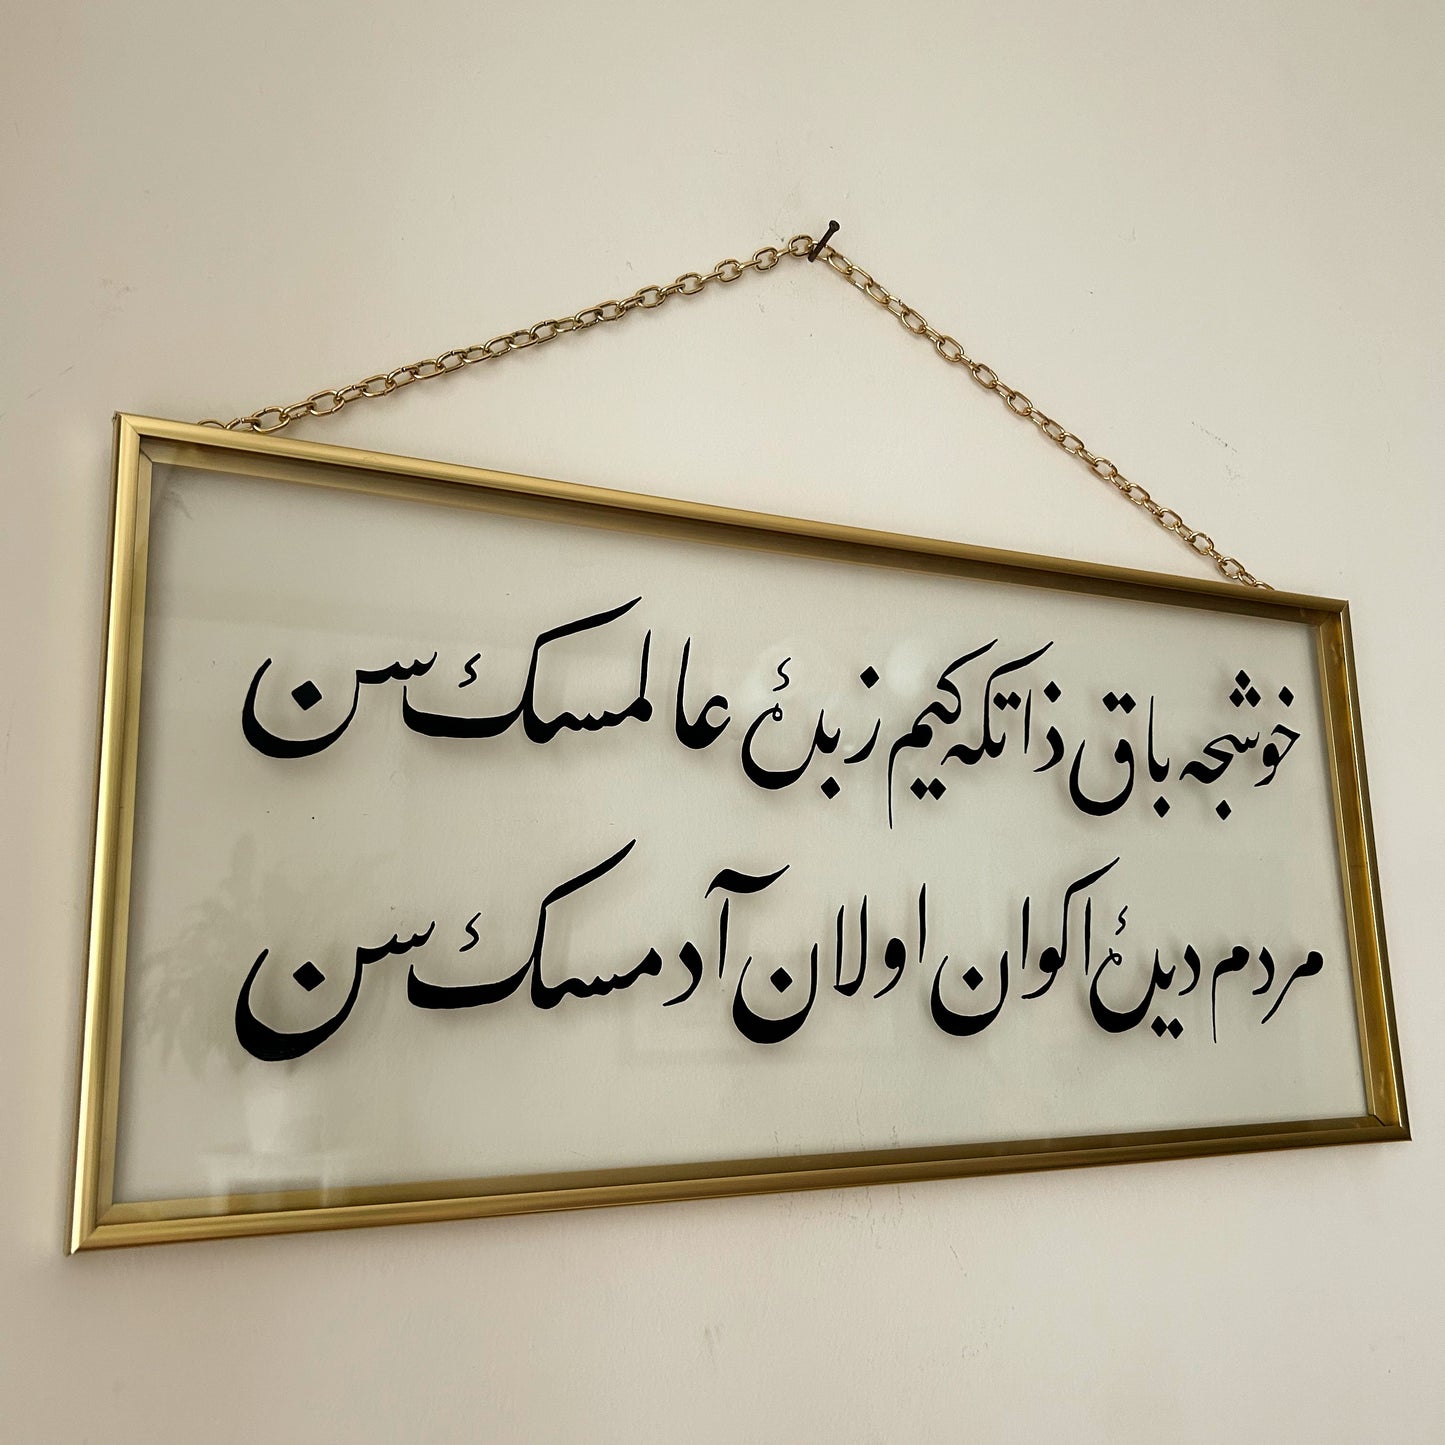 خوشجه باق ذاتکه کیم زبدهٔ عالمسك سن
مردم دیدهٔ اکوان اولان آدمسك سن